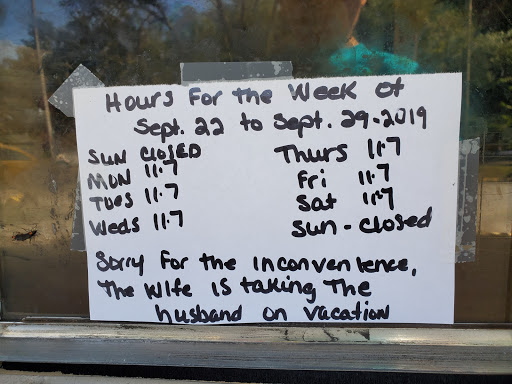 Hours For the Week of
Sept. 22 to Sept. 29-2019
SUN CLOSED
MON 11-7
TUES 11-7
Weds 11-7
Thurs 11-7
Fri 11-7
Sat 11-7
Sun - closed
Sorry For the inconvenience,
The Wife is taking The
husband on vacation